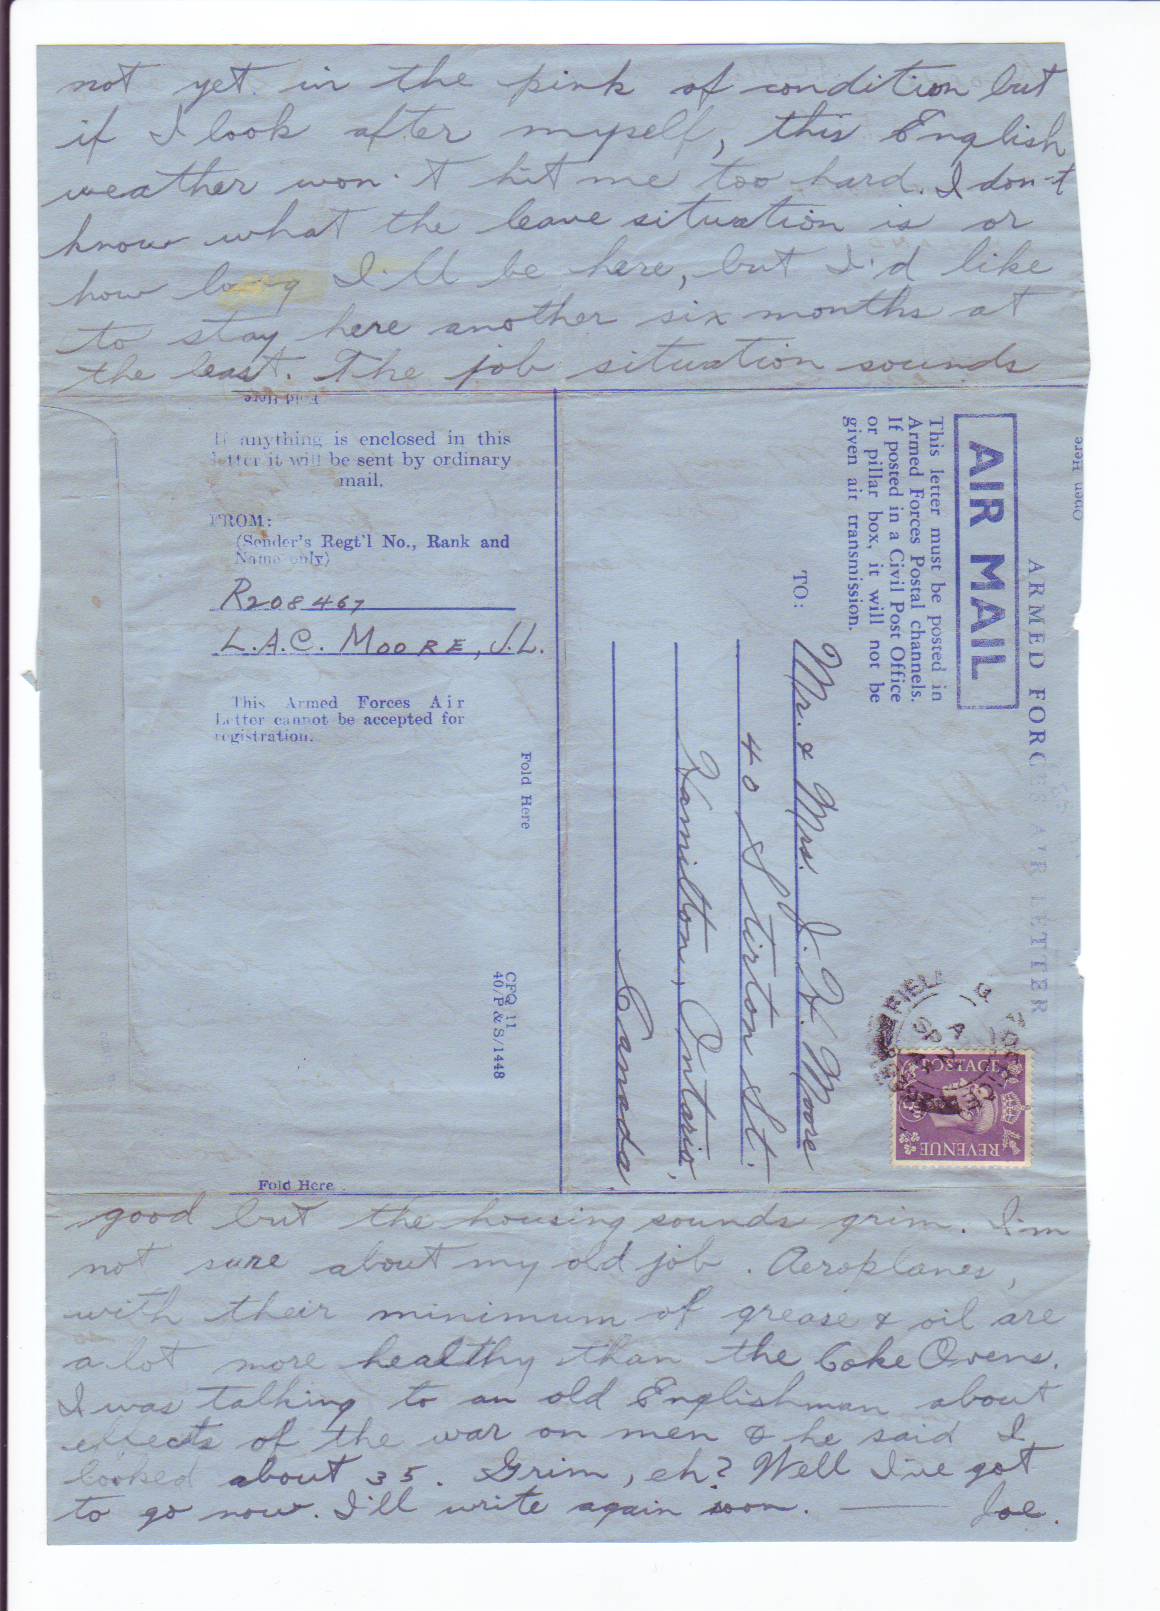 not yet in the pink of condition but
if I look after myself, this English
weather won't hit me too hard. I don't
know what the leave situation is or
how long I'll be here, but I'd like
to stay here another six months at
the least. The job situation sounds
Fold Here
If anything is enclosed in this
letter it will be sent by ordinary
mail.
FROM:
(Sender's Regt'l No., Rank and
Name only)
R208467
L.A.C. MOORE, J.L.
This Armed Forces Air
Letter cannot be accepted for
registration.
Fold Here
CFQ 11
40/P & S/1448
Fold Here
Open Here
ARMED FORCES AIR LETTER
AIR MAIL
This letter must be posted in
Armed Forces Postal channels.
If posted in a Civil Post Office
or pillar box, it will not be
given air transmission.
TO:
Mr. & Mrs. J. H. Moore
40 Stirton St.
Hamilton, Ontario,
Canada.
POSTAGE
REVENUE
good but the housing sounds grim. I'm
not sure about my old job. Aeroplanes,
with their minimum of grease & oil are
a lot more healthy than the Coke Ovens.
I was talking to an old Englishman about
effects of the war on men & he said I
looked about 35. Grim, eh? Well I've got
to go now. I'll write again soon. — Joe.